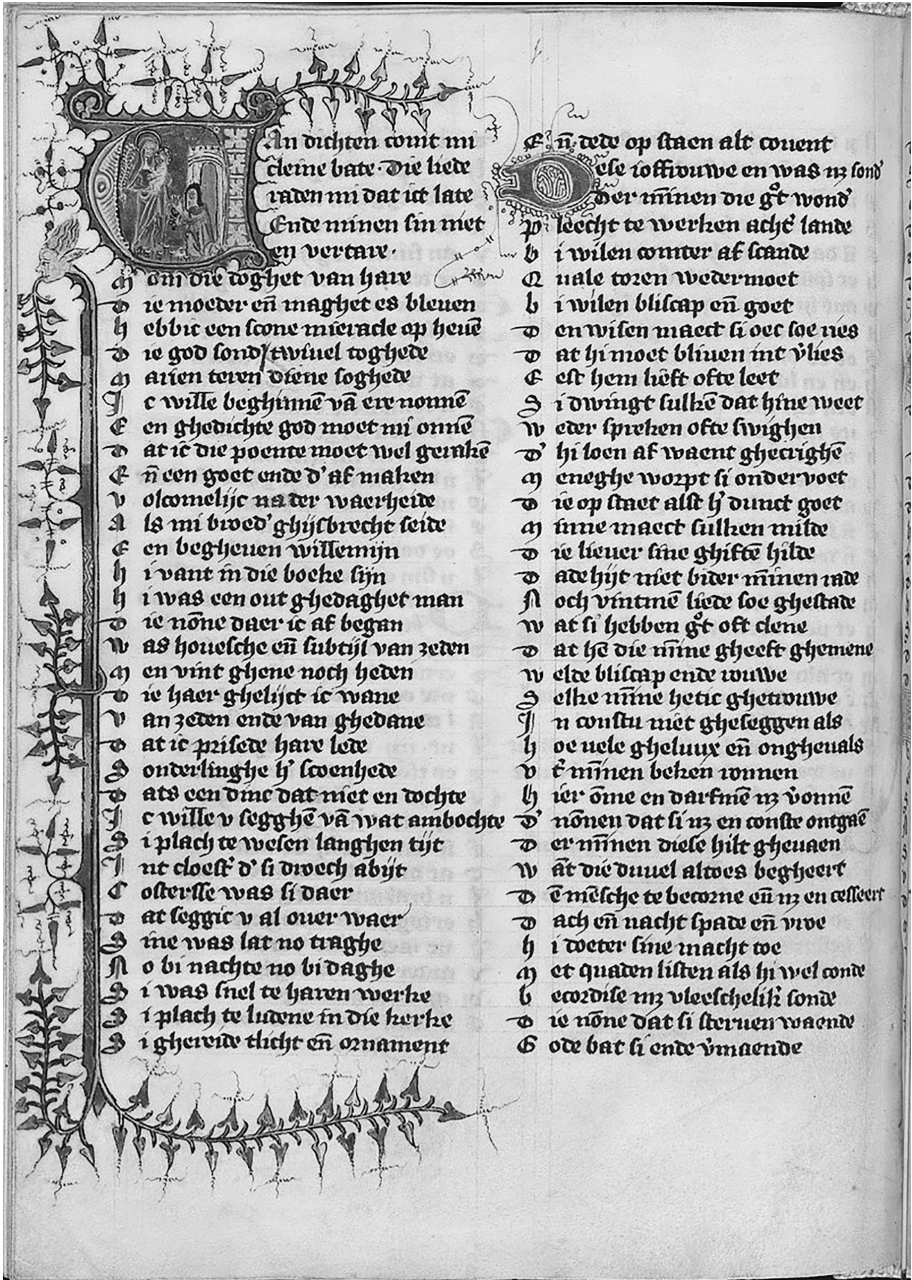 Van dichten comt mi
cleine bate · Die liede
raden mi dat ict late
Ende minen sin niet
en vertare ·
M om die doghet van hare
D ie moeder eñ maghet es bleuen
H ebbic een scone mieracle op heuē
D ie god sond' twiuel toghede
M arien teren diene soghede
I c wille beghinnē vā ere nonnen
E en ghedichte god moet mi onnen
D at ic die poente moet wel gerakē
E ñ een goet ende d' af maken
V olcomelijc na der waerheide
A ls mi broed' ghijsbrecht seide
E en begheuen willemijn
H i vant in die boeke sijn
H i was een out ghedaghet man
D ie nōne daer ic af began
W as houesche eñ subtijl van zeden
M en vint ghene noch heden
D ie haer ghelijct ic wane
V an zeden ende van ghedane
D at ic prisede hare lede
S onderlinghe h' scoenhede
D ats een dinc dat niet en dochte
I c wille v segghē vā wat ambochte
S i plach te wesen langhen tijt
I nt cloest' d' si droech abijt
C ostersse was si daer
D at seggic v al ouer waer
S ine was lat no traghe
N o bi nachte no bi daghe
S i was snel te haren werke
S i plach te ludene in die kerke
S i ghereide tlicht eñ ornament
E ñ dede op staen alt couent
D ese ioffrouwe en was nz sond'
Der mīnen die gͦt wond'
P leecht te werken acht' lande
B i wilen comter af scande
Q uale toren wedermoet
B i wilen bliscap eñ goet
D en wisen maect si oec soe ries
D at hi moet bliuen int v'lies
E est hem lieft ofte leet
S i dwingt sulkē dat hine weet
W eder spreken ofte swighen
D' hi loen af waent ghecrighē
M eneghe worpt si onder voet
D ie op staet alst h' dunct goet
M inne maect sulken milde
D ie lieuer sine ghiftē hilde
D ade hijt niet bider mīnen rade
N och vintmē liede soe ghestade
W at si hebben gͦt oft clene
D at hē die mīne gheeft ghemene
W elde bliscap ende rouwe
S elke mīne hetic ghetrouwe
I n constu niet gheseggen als
H oe vele gheluux eñ ongheuals
V t' mīnen beken ronnen
H ier ōme en darfmē nz v'onnē
D' nōnen dat si nz en conste ontgaē
D er mīnen diese hilt gheuaen
W āt die duuel altoes begheert
D ē mēsche te becorne eñ nz en cesseert
D ach eñ nacht spade eñ vroe
H i doeter sine macht toe
M et quaden listen als hi wel conde
B ecordise mz vleeschelik' sonde
D ie nōne dat si steruen waende
G ode bat si ende v'maende